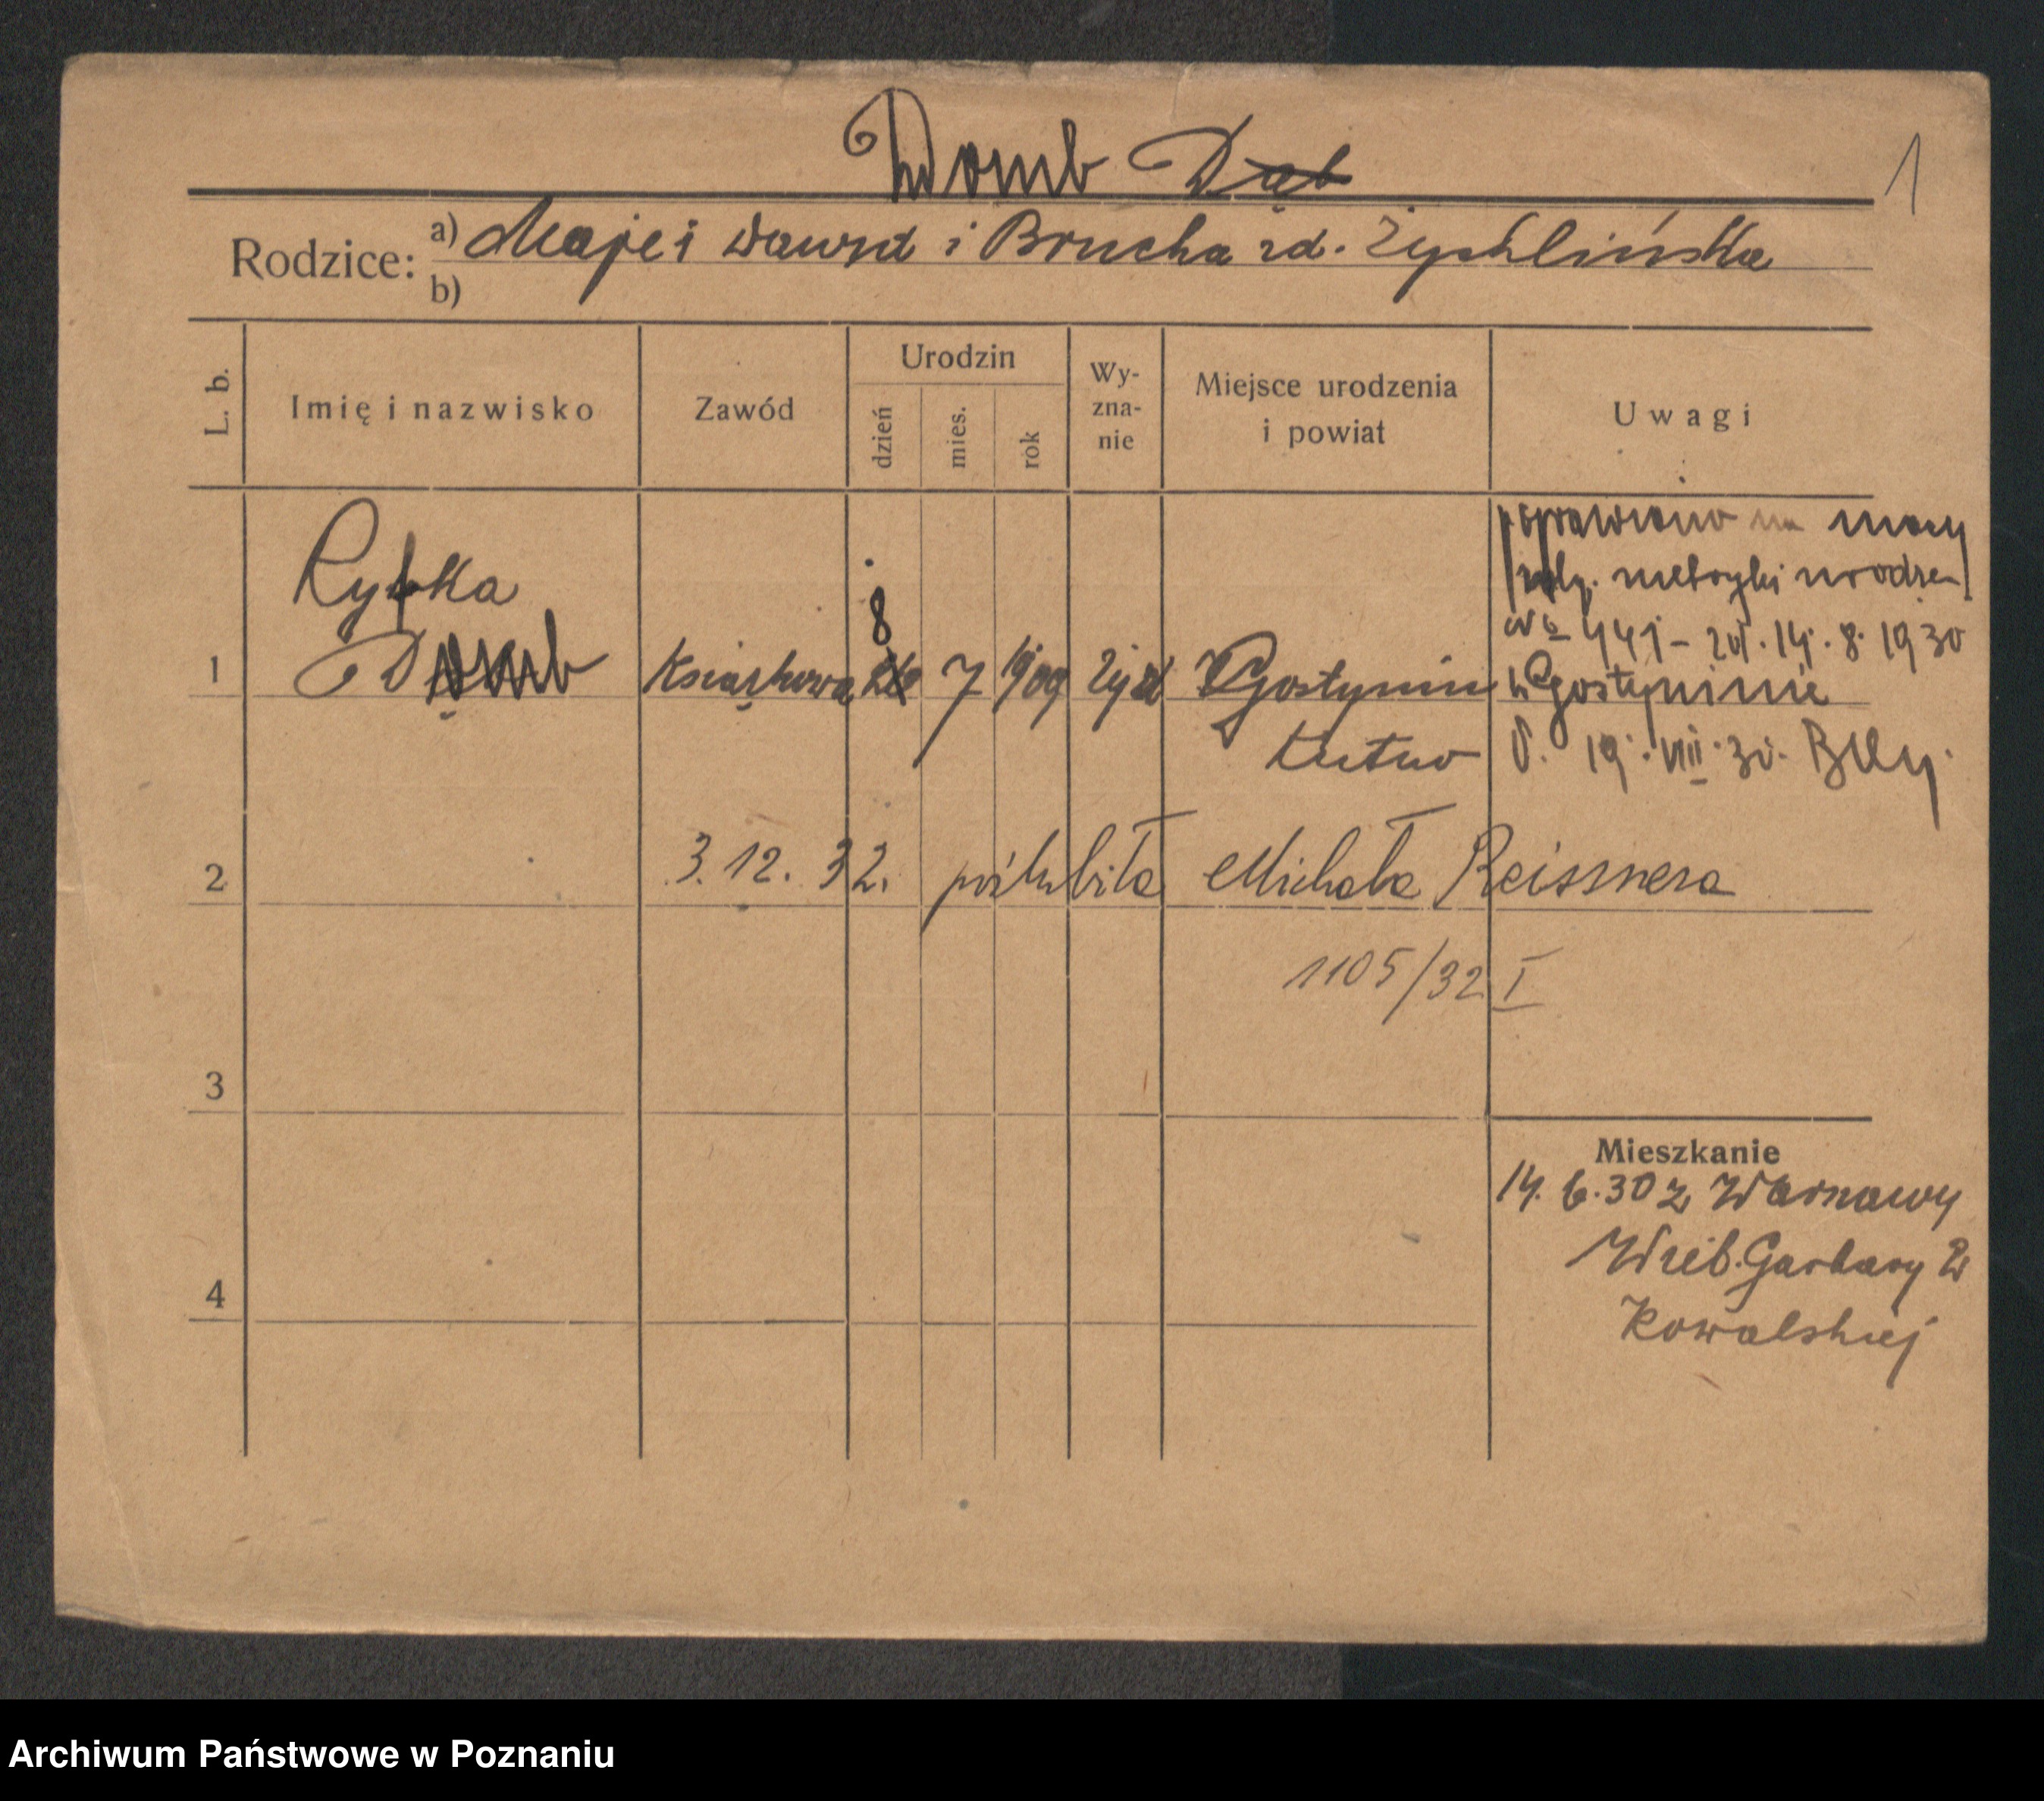 Domb Dąb
1
Rodzice: a) Majei Dawid i Brucha zd. Żychlińska
b)
L. b.
Imię i nazwisko
Zawód
Urodzin
dzień
mies.
rok
Wy-
zna-
nie
Miejsce urodzenia
i powiat
Uwagi
Rybka
8
1 Domb 7 1909 Gostynin
Kutno
poprawiono na mocy
metryki urodze
No 441 - 14.8.1930
w Gostyninie
19.VIII.30.
2 3.12.32. poślubiła Michała Reissnera
1105/32 I
3
Mieszkanie
14. 6. 30 z Warszawy
Garbary
4
Kowalskiej
Archiwum Państwowe w Poznaniu